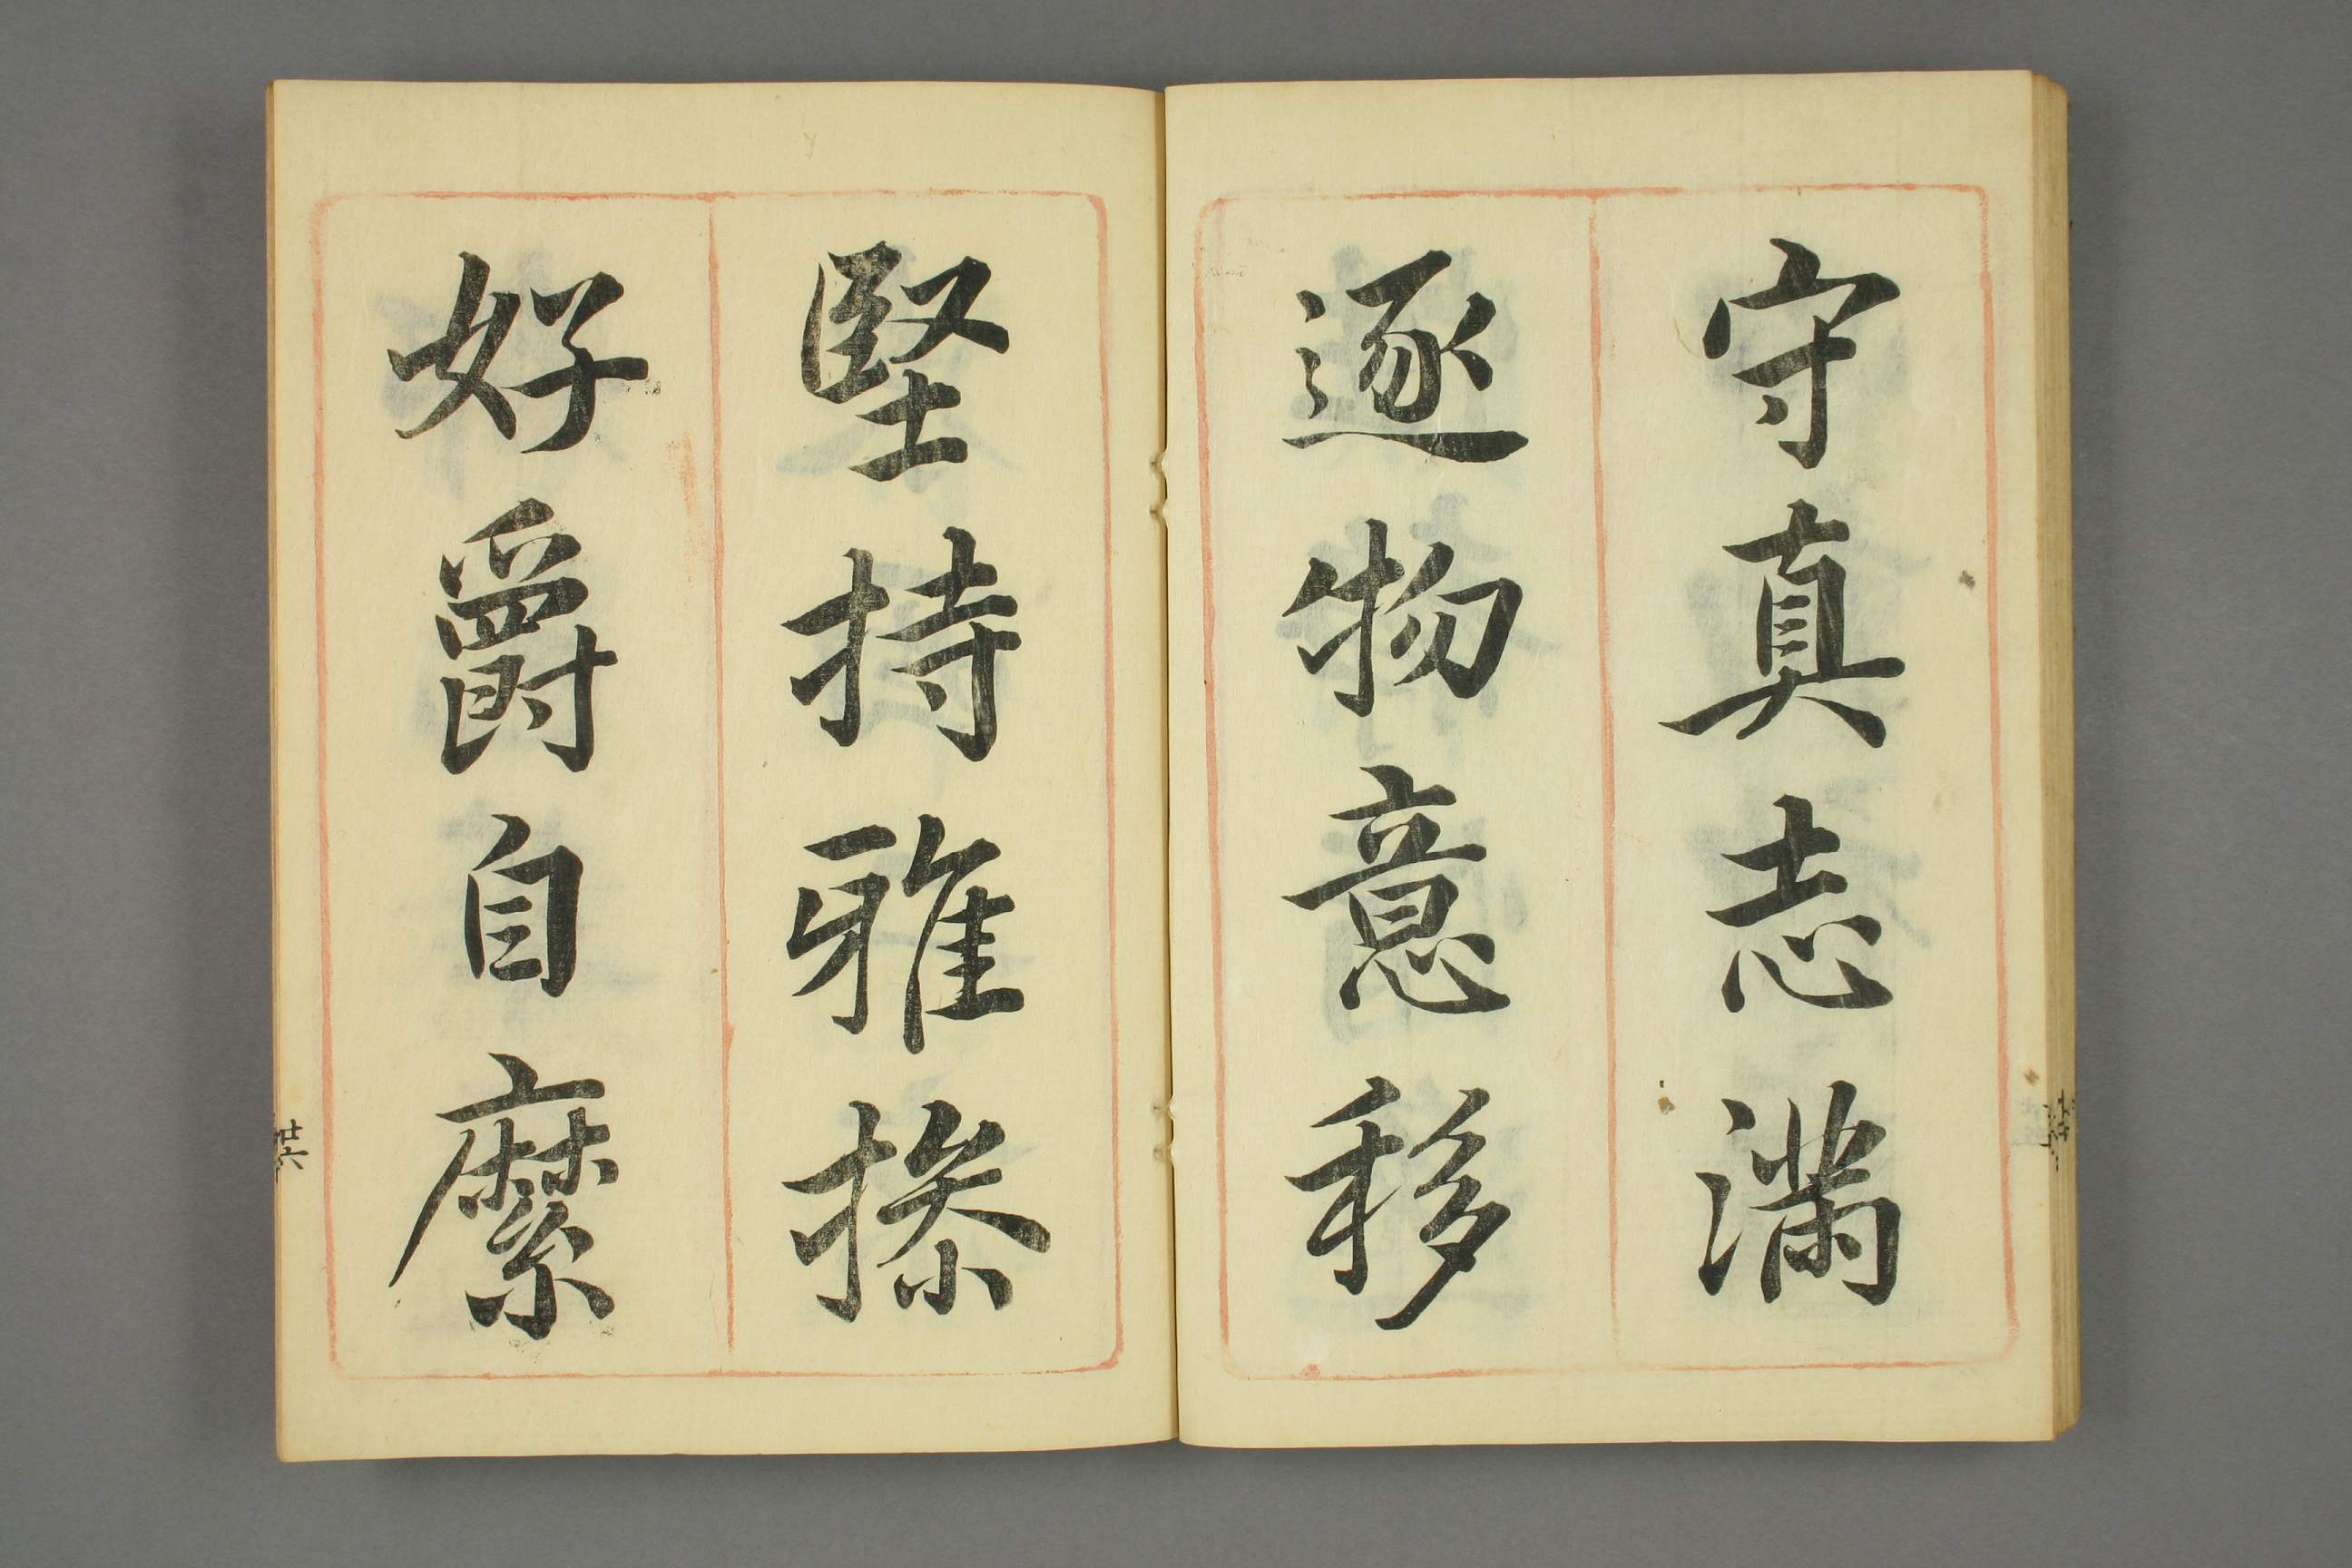 守真志満
逐物意移
堅持雅操
好爵自縻
廿六